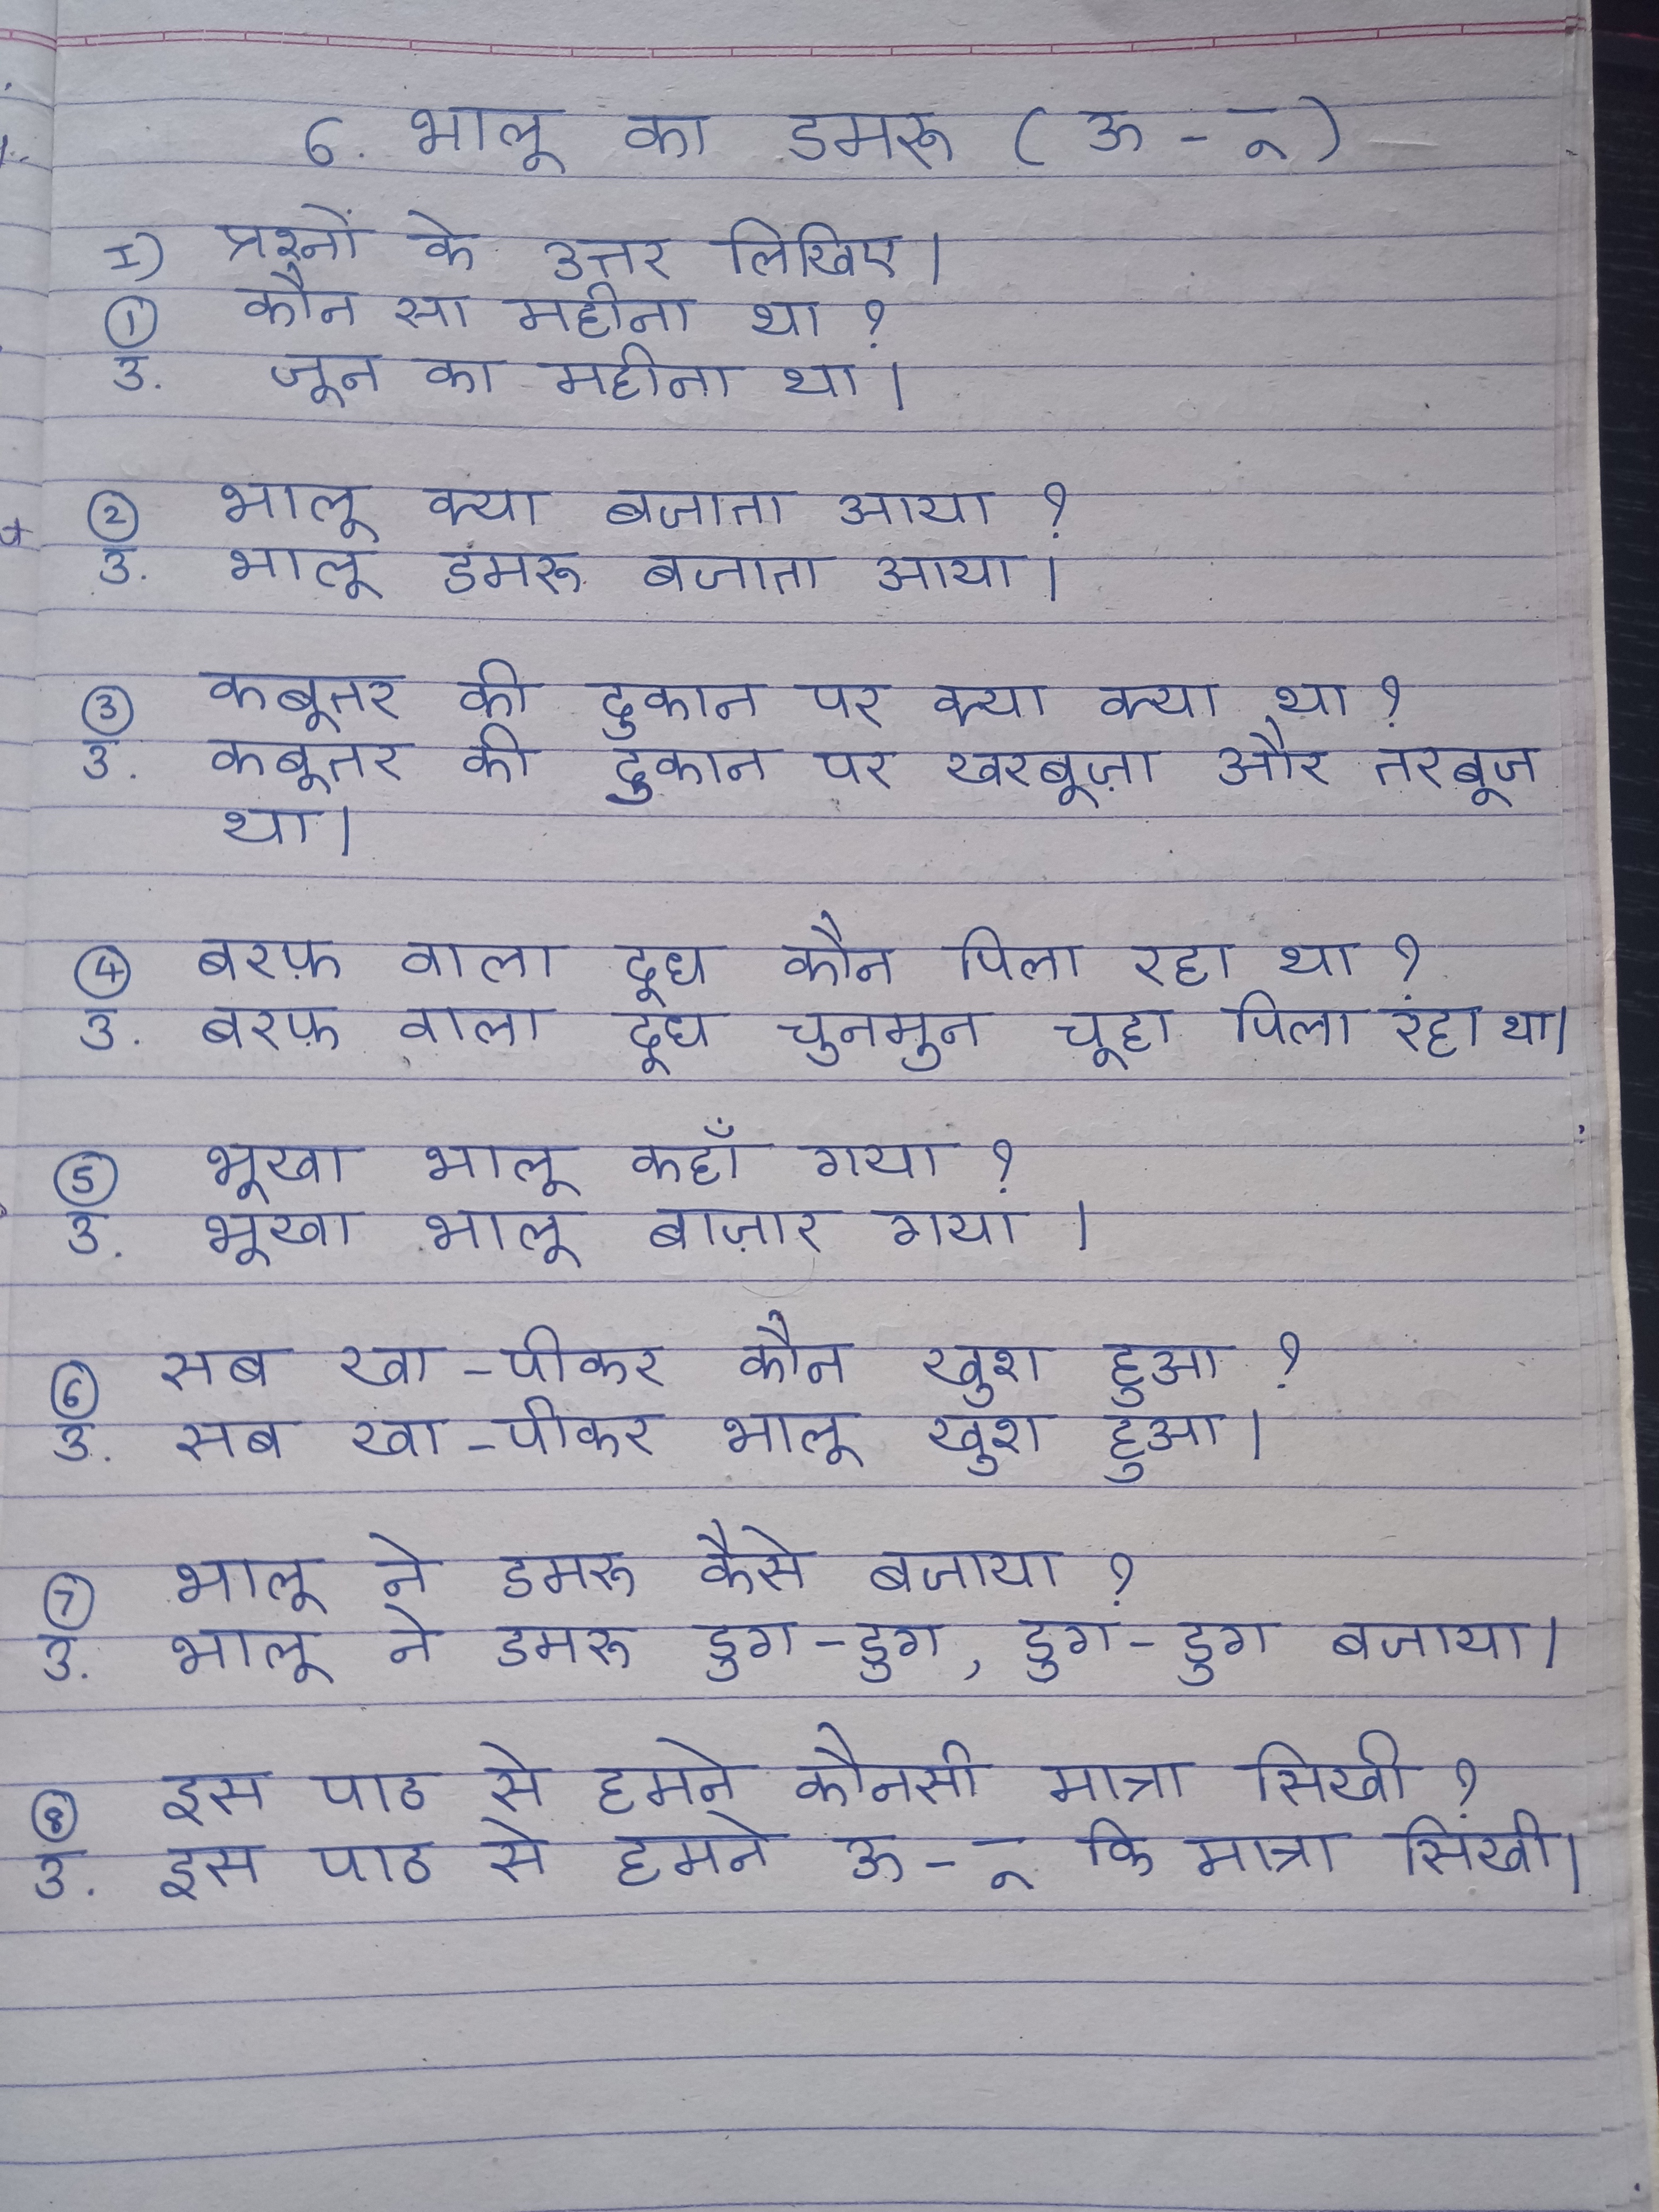 6. भालू का डमरू ( ऊ - ू )
I) प्रश्नों के उत्तर लिखिए।
① कौन सा महीना था ?
उ. जून का महीना था।
② भालू क्या बजाता आया ?
उ. भालू डमरू बजाता आया।
③ कबूतर की दुकान पर क्या क्या था ?
उ. कबूतर की दुकान पर खरबूज़ा और तरबूज
था।
④ बरफ़ वाला दूध कौन पिला रहा था ?
उ. बरफ़ वाला दूध चुनमुन चूहा पिला रहा था।
⑤ भूखा भालू कहाँ गया ?
उ. भूखा भालू बाज़ार गया ।
⑥ सब खा -पीकर कौन खुश हुआ ?
उ. सब खा -पीकर भालू खुश हुआ।
⑦ भालू ने डमरू कैसे बजाया ?
उ. भालू ने डमरू डुग -डुग, डुग - डुग बजाया।
⑧ इस पाठ से हमने कौनसी मात्रा सिखी ?
उ. इस पाठ से हमने ऊ - ू कि मात्रा सिखी।